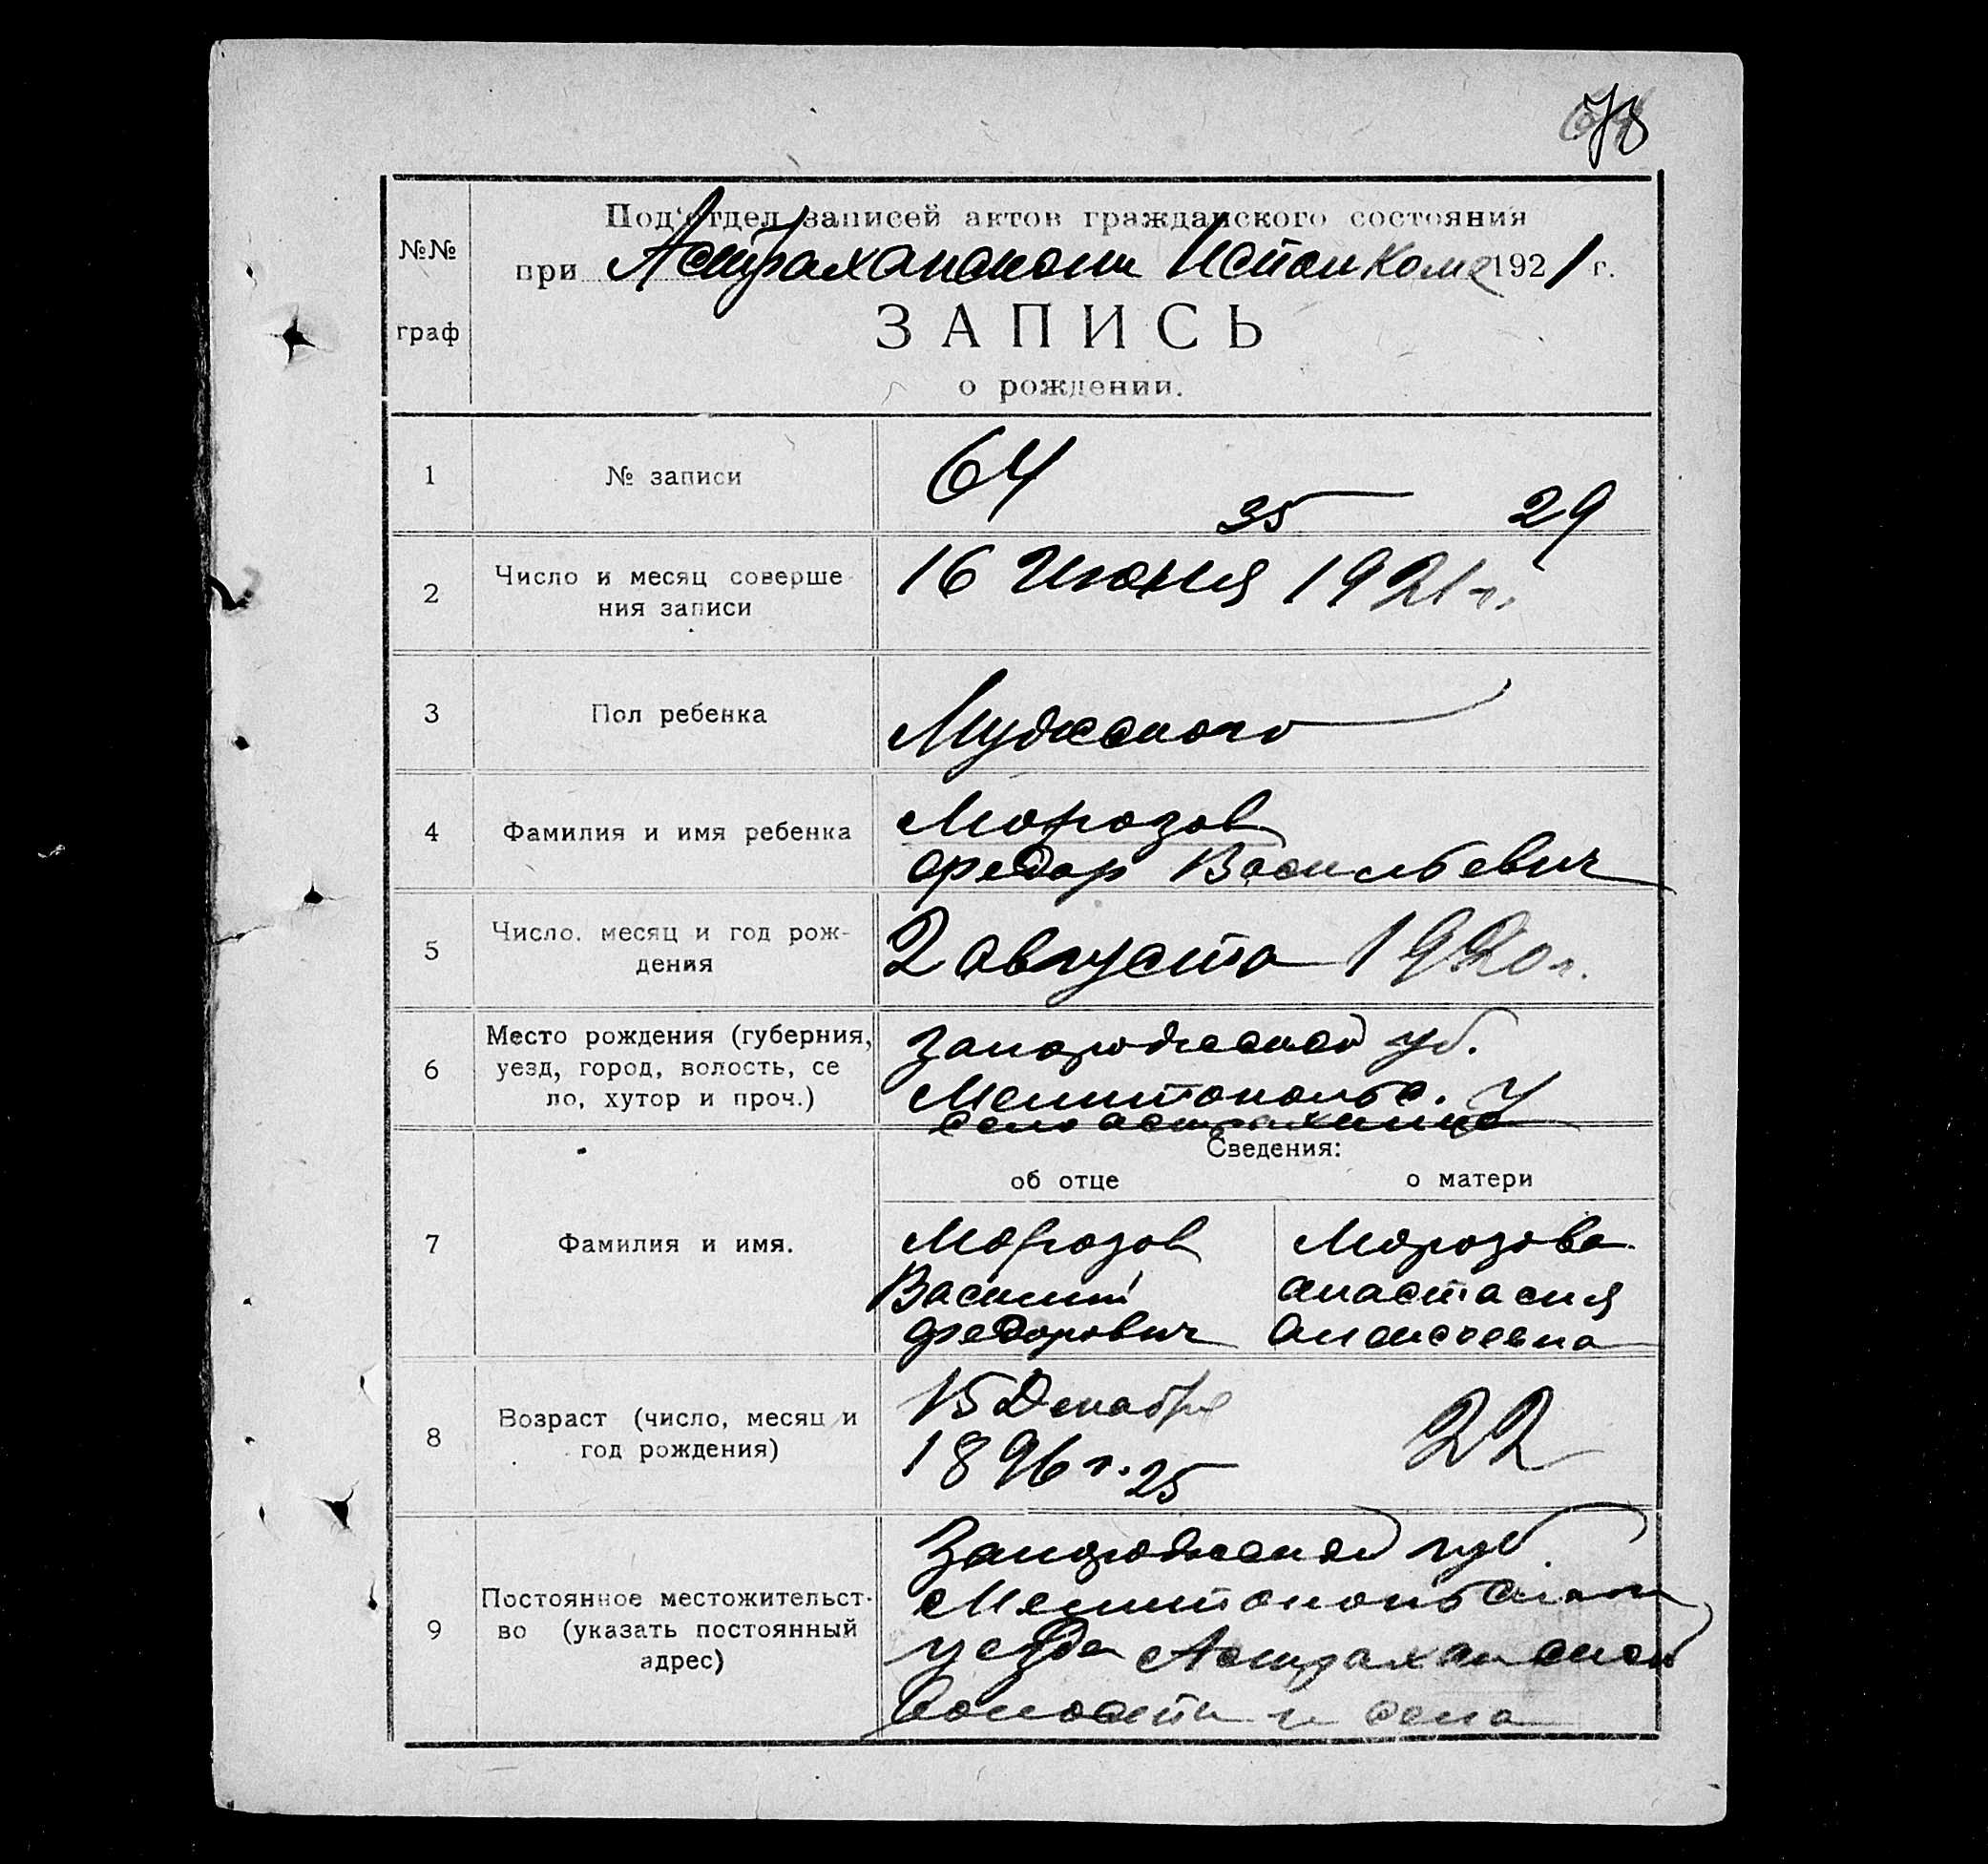 78
Под'отдел записей актов гражданского состояния
№№
при Астраханском Исполкоме 1921 г.
граф
ЗАПИСЬ
о рождении.
1 № записи 64
35 — 29
2 Число и месяц соверше-
ния записи
16 Июня 1921 г.
3 Пол ребенка Мужского
4 Фамилия и имя ребенка
Морозов
Федор Васильевич
5 Число, месяц и год рож-
дения
2 августа 1920 г.
6 Место рождения (губерния,
уезд, город, волость, се
ло, хутор и проч.)
Запорожской губ.
Мелитопольс. у
село Астраханка
Сведения:
об отце о матери
7 Фамилия и имя.
Морозов
Василий
Федорович
Морозова
Анастасия
Алексеевна
8 Возраст (число, месяц и
год рождения)
15 Декабря
1896 г. 25
22
9 Постоянное местожительст-
во (указать постоянный
адрес)
Запорожской губ.
Мелитопольского
уезда Астраханской
волости и села